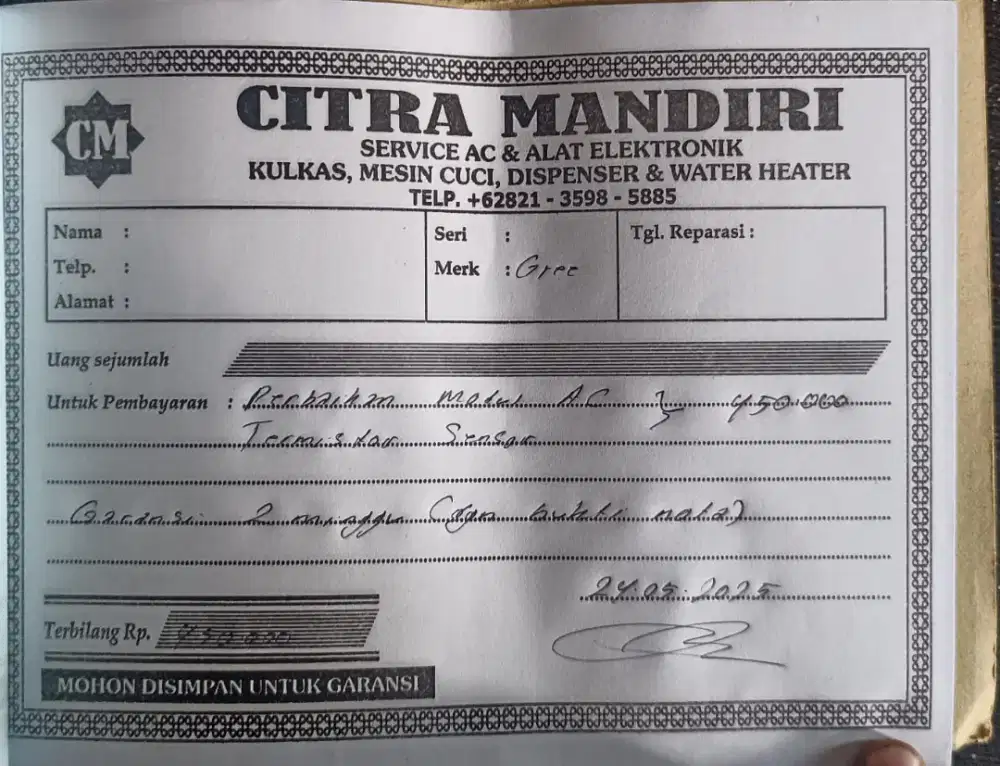 CM
CITRA MANDIRI
SERVICE AC & ALAT ELEKTRONIK
KULKAS, MESIN CUCI, DISPENSER & WATER HEATER
TELP. +62821 - 3598 - 5885
Nama :
Telp. :
Alamat :
Seri :
Merk : Gree
Tgl. Reparasi :
Uang sejumlah
Untuk Pembayaran : Perbaikan Modul AC } 450.000
Termistor Sensor
Garansi 2 minggu (dgn bukti nota)
24.05.2025
Terbilang Rp. 450.000
MOHON DISIMPAN UNTUK GARANSI